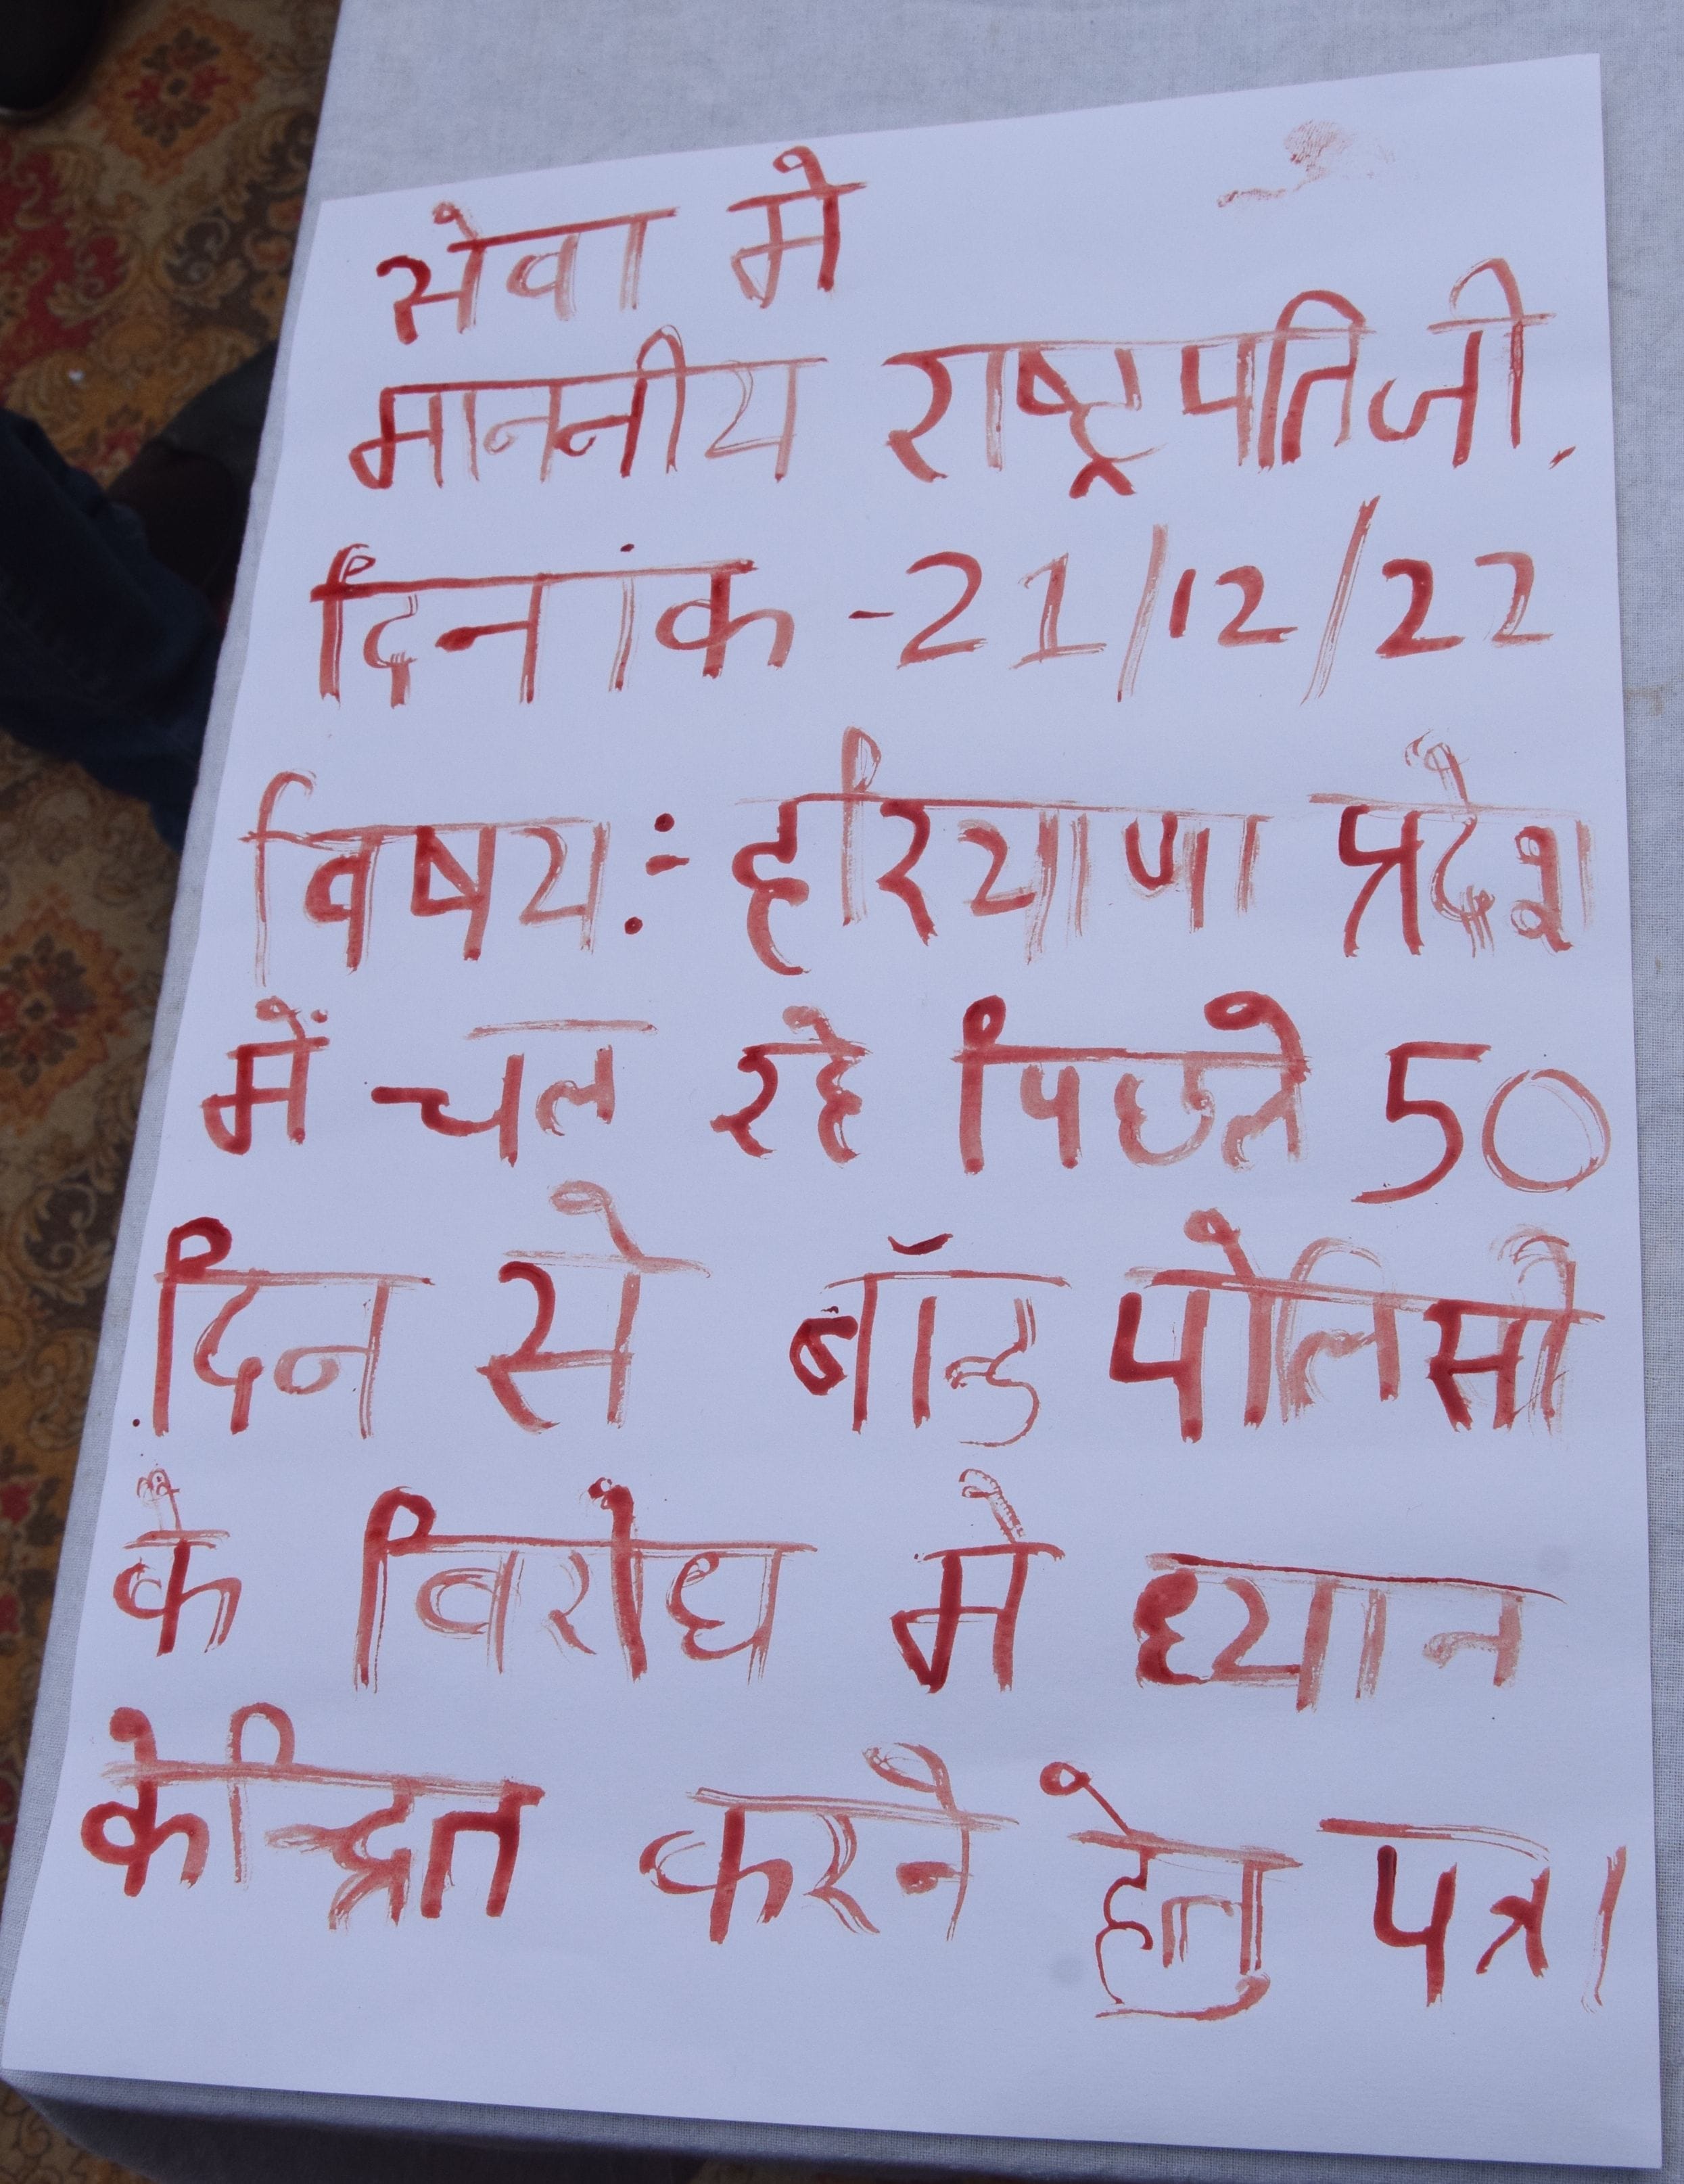 सेवा मे
माननीय राष्ट्रपतिजी,
दिनांक -21/12/22
विषय:- हरियाणा प्रदेश
में चल रहे पिछले 50
दिन से बॉंड पोलिसी
के विरोध मे ध्यान
केन्द्रित करने हेतु पत्र।